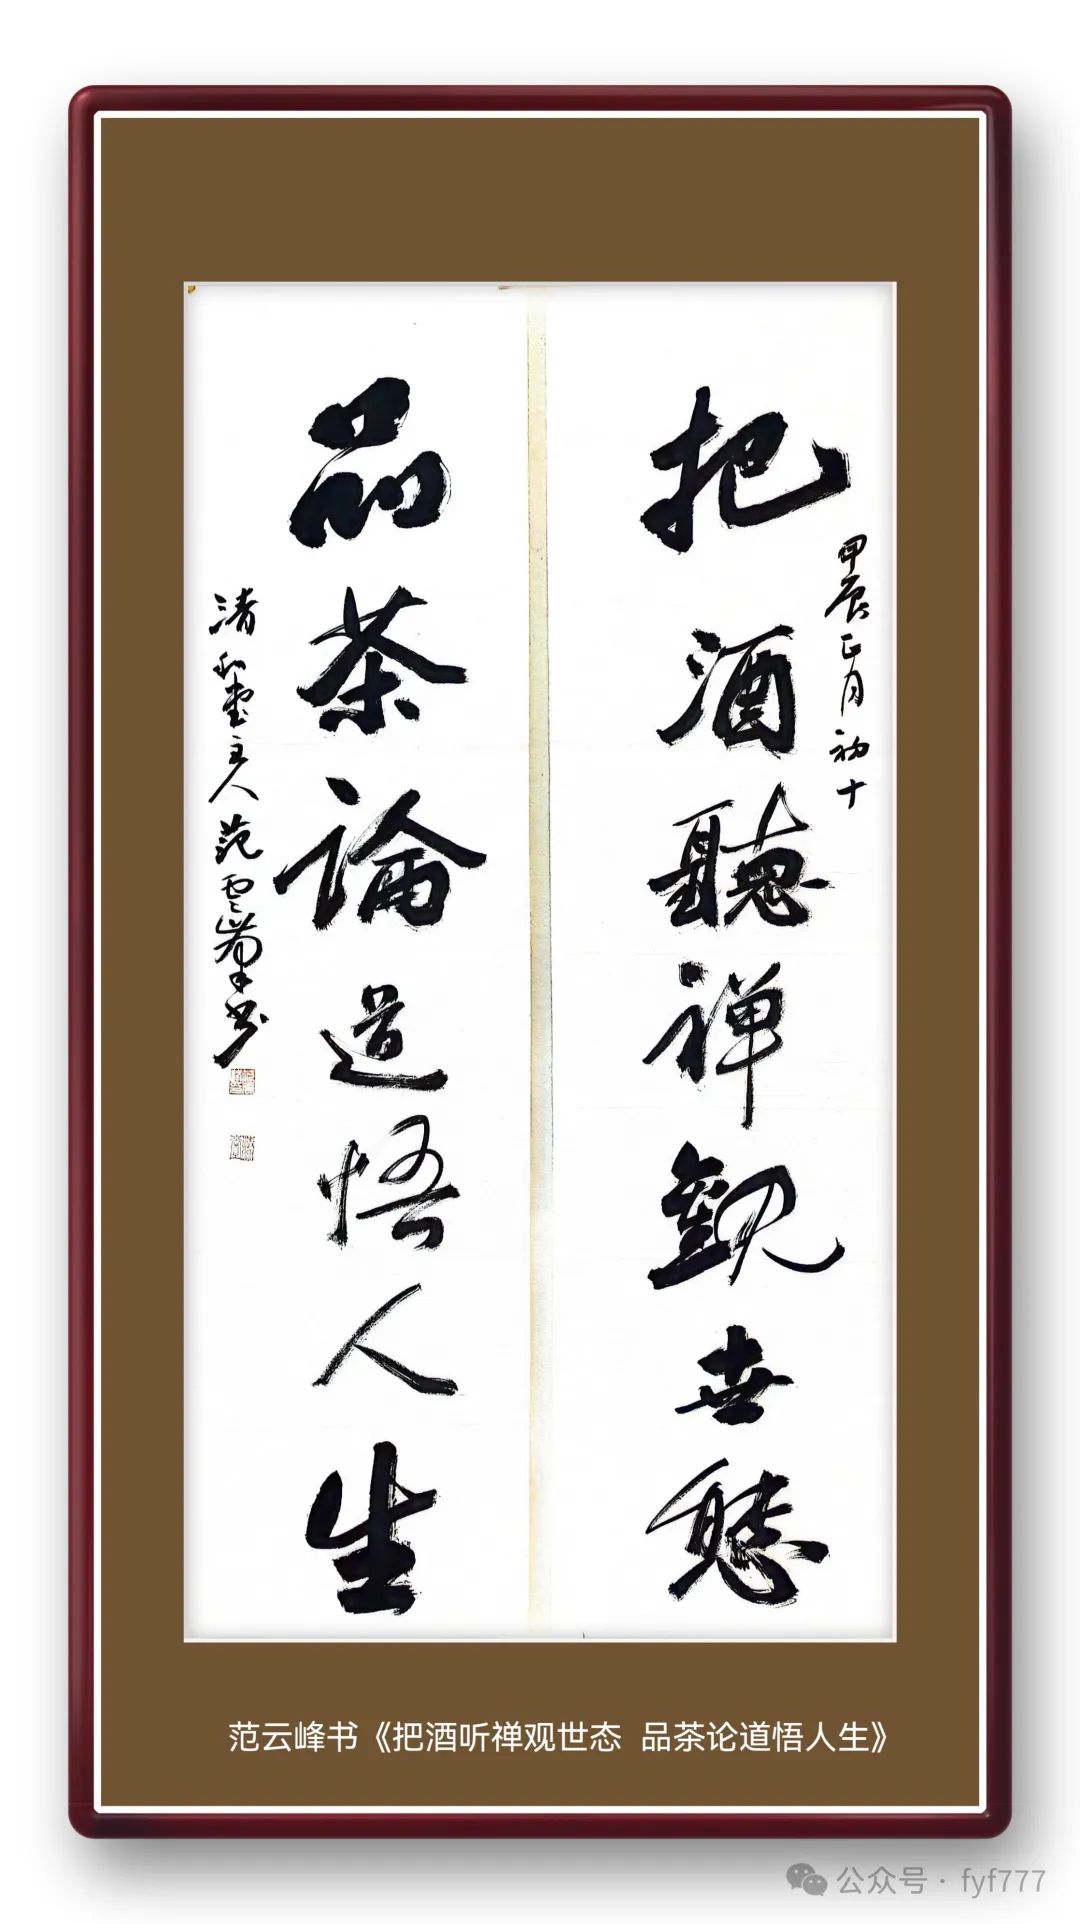 甲辰正月初十
把酒聽禅觀世態
品茶論道悟人生
清和堂主人范雲峯书
范云峰书《把酒听禅观世态 品茶论道悟人生》
公众号·fyf777